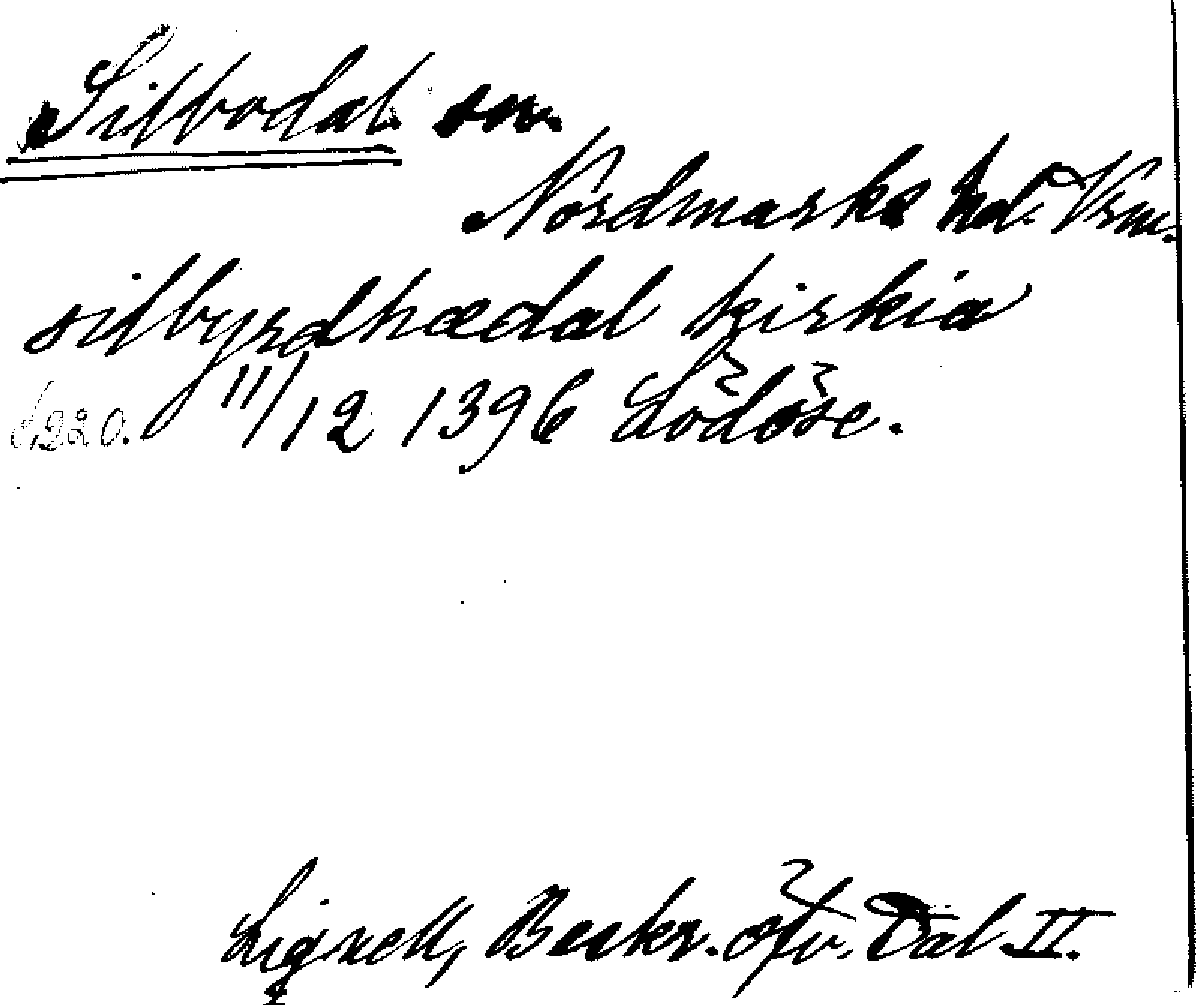 Silbodal sn.
Nordmarks hd. Vrm.
silbyrdhædal kirkia
s. 220. 11/12 1396 Lödöse.
Lignell, Beskr. öfv. Dal II.